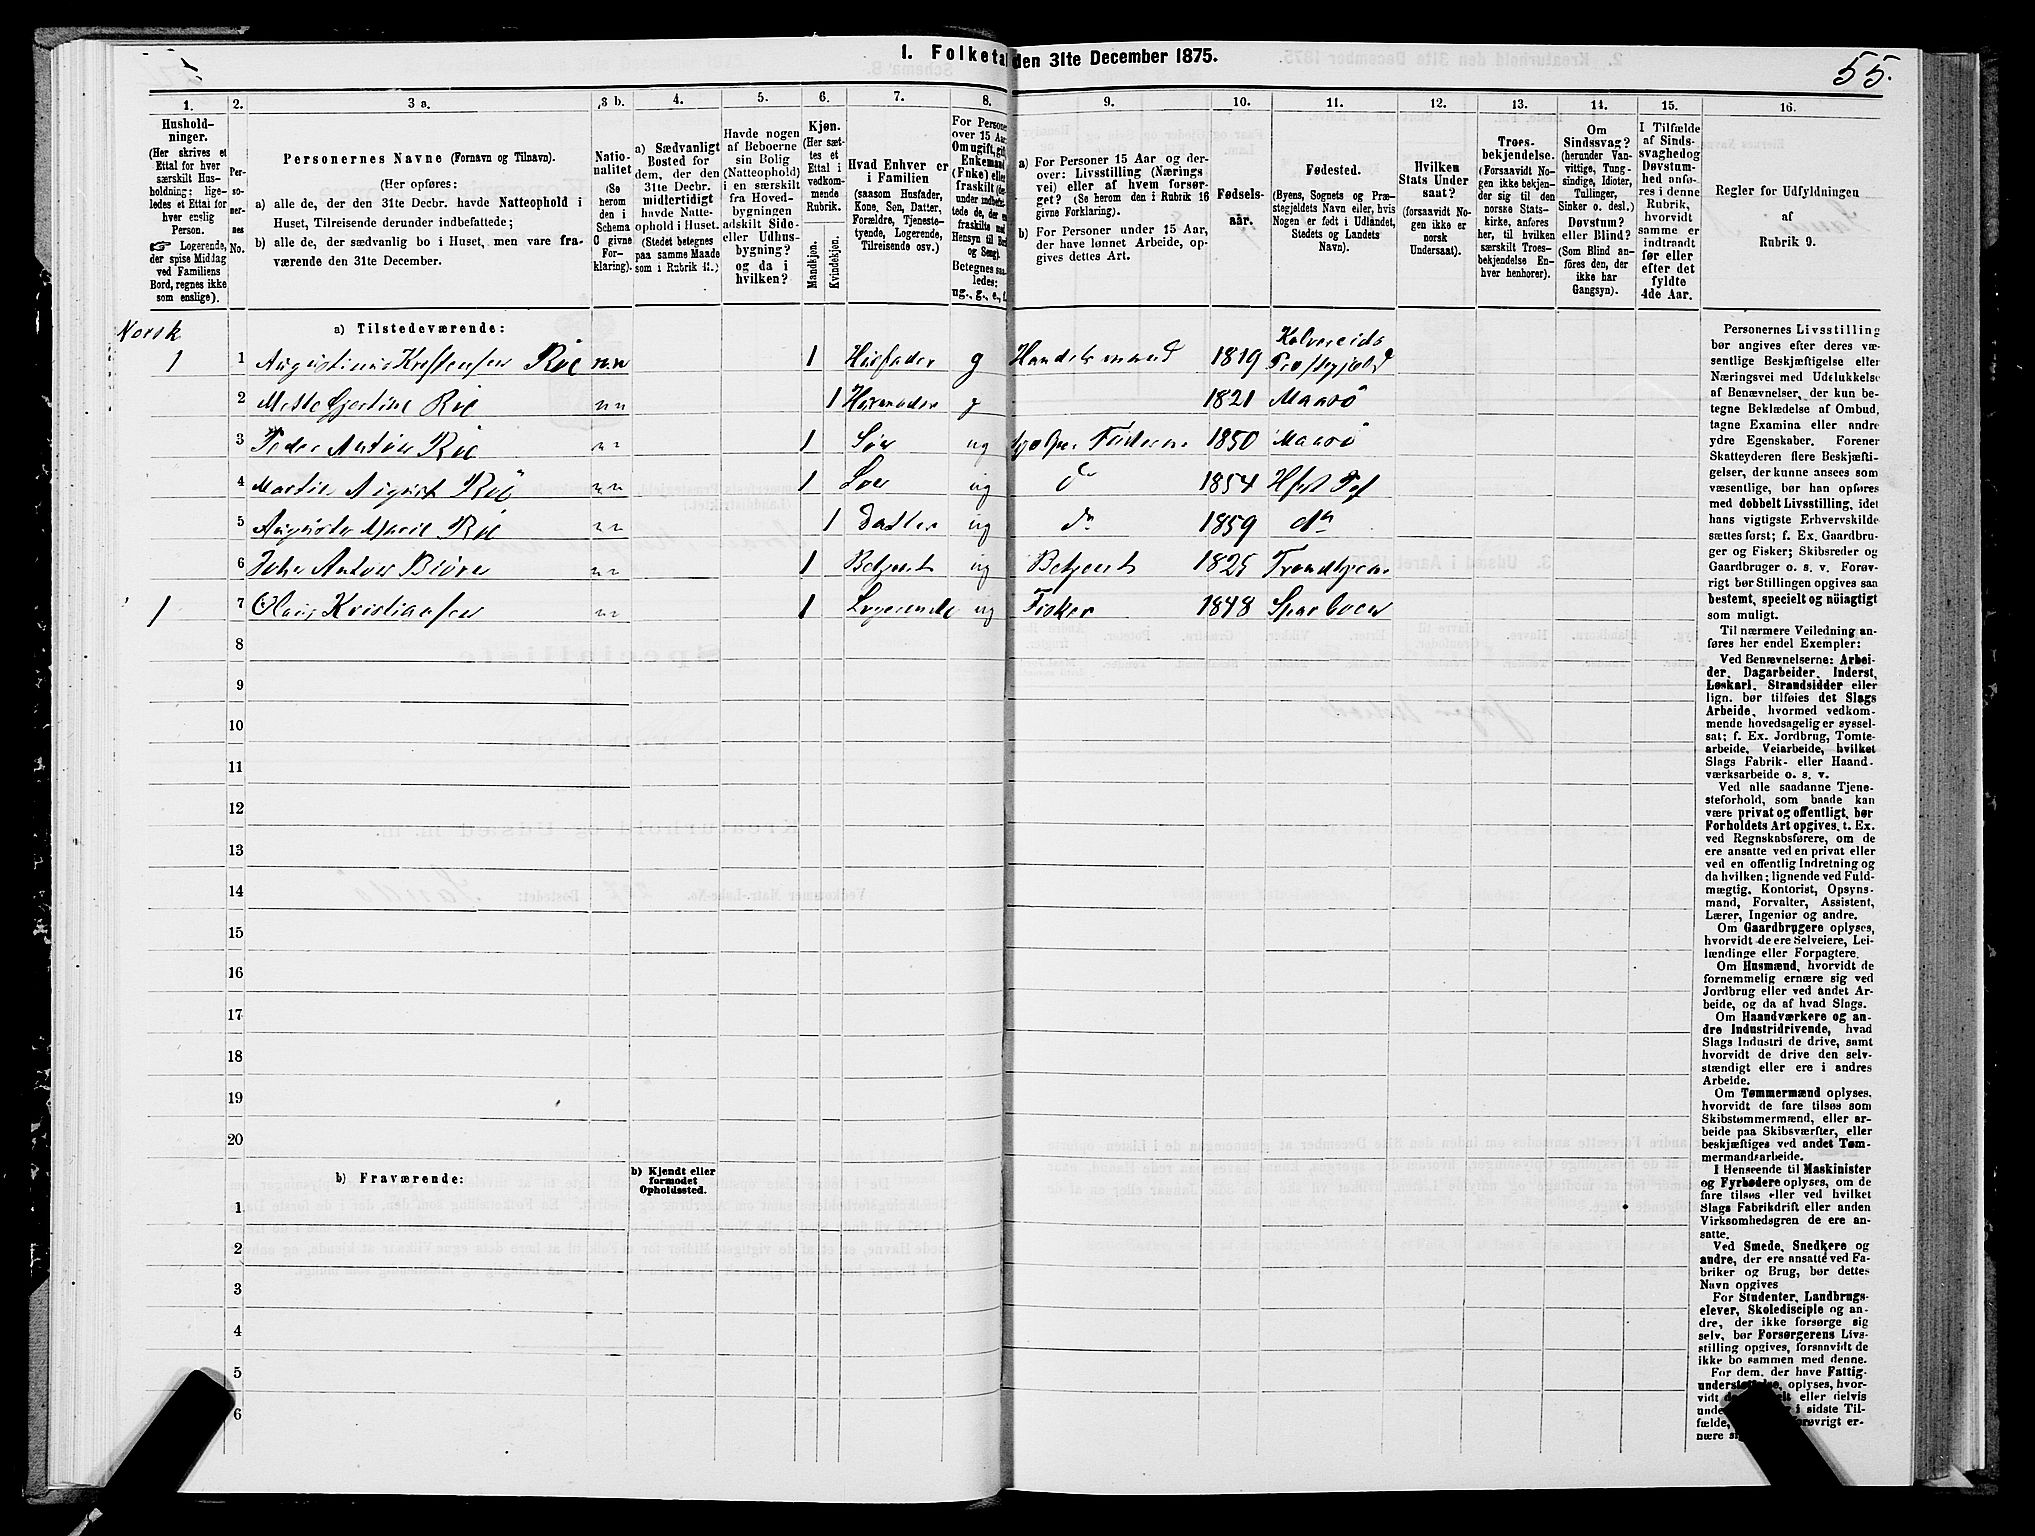 1. Folketal den 31te December 1875.
55.
1. 2. 3 a. 3 b. 4. 5. 6. 7. 8. 9. 10. 11. 12. 13. 14. 15. 16.
Husholdninger.
(Her skrives et
Ettal for hver
særskilt Husholdning;
ligeledes et Ettal for
hver enslig
Person.
☞ Logerende,
der spise Middag
ved Familiens
Bord, regnes ikke
som enslige).
Personernes
No.
Personernes Navne (Fornavn og Tilnavn).
(Her opføres:
a) alle de, der den 31te Decbr. havde Natteophold i
Huset, Tilreisende derunder indbefattede;
b) alle de, der sædvanlig bo i Huset, men vare fraværende
den 31te December.
Nationalitet
(Se
herom
den i
Schema
O givne
Forklaring).
a) Sædvanligt
Bosted for
dem, der den
31te Decbr.
midlertidigt
havde Natteophold
i Huset.
(Stedet betegnes
paa samme Maade
som i Rubrik 11.)
Havde nogen
af Beboerne
sin Bolig
(Natteophold)
i en særskilt
fra Hovedbygningen
adskilt Side-
eller Udhusbygning?
og da i
hvilken?
Kjøn.
(Her sættes
et
Ettal i
vedkommende
Rubrik.
Mandkjøn.
Kvindekjøn.
Hvad Enhver er
i Familien
(saasom Husfader,
Kone, Søn, Datter,
Forældre, Tjenestetyende,
Logerende,
Tilreisende osv.)
For Personer
over 15 Aar:
Om ugift, gift,
Enkemand
(Enke) eller
fraskilt
Betegnes saaledes:
ug., g., e., f.
a) For Personer 15 Aar og derover:
Livsstilling (Næringsvei)
eller af hvem forsørget?
(Se herom den i Rubrik 16
givne Forklaring).
b) For Personer under 15 Aar,
der have lønnet Arbeide, opgives
dettes Art.
Fødselsaar.
Fødested.
(Byens, Sognets og Præstegjeldets
Navn eller, hvis
Nogen er født i Udlandet,
Stedets og Landets
Navn).
Hvilken
Stats Undersaat?
(forsaavidt Nogen
ikke er
norsk
Undersaat).
Troesbekjendelse.
(Forsaavidt Nogen
ikke bekjender
sig til den
norske Statskirke,
anføres
her, til hvilken
særskilt Troesbekjendelse
Enhver
henhører).
Om
Sindssvag?
(herunder Vanvittige,
Tungsindige,
Idioter,
Tullinger,
Sinker o. desl.)
Døvstum?
eller Blind?
(Som Blind anføres
den, der
ikke har
Gangsyn).
I Tilfælde
af Sindssvaghed
og
Døvstumhed
anføres
i denne
Rubrik,
hvorvidt
samme er
indtraadt
før eller
efter det
fyldte
4de Aar.
Regler for Udfyldningen
af
Rubrik 9.
Norsk
a) Tilstedeværende:
1 1 Augustinus Kristensen Röe n.n 1 Husfader g Handelsmand 1819 Præstegjeld
2 Mette Gjertine Röe nn 1 Husmoder g 1821 Maasö
3 Peder Anton Röe nn 1 Sön ug hjelper Faderen 1850 Maasö
4 Martin August Röe nn 1 Sön ug do 1854 Hfst
5 Augusta Marie Röe nn 1 Datter ug do 1859 do
6 Johan Anton nn 1 Betjent ug Betjent 1825 Trondhjem
1 7 Olaus Kristiansen nn 1 Logerende ug Fisker 1848 Sparboen
8
9
10
11
12
13
14
15
16
17
18
19
20
b) Fraværende: b) Kjendt eller
formodet
Opholdssted.
1
2
3
4
5
6
Personernes Livsstilling
bør angives efter deres væsentlige
Beskjæftigelse eller
Næringsvei med Udelukkelse
af Benævnelser, der kun betegne
Beklædelse af Ombud,
tagne Examina eller andre
ydre Egenskaber. Forener
Skatteyderen flere Beskjæftigelser,
der kunne ansees som
væsentlige, bør han opføres
med dobbelt Livsstilling, idet
hans vigtigste Erhvervskilde
sættes først; f. Ex. Gaardbruger
og Fisker; Skibsreder og
Gaardbruger o. s. v. Forøvrigt
bør Stillingen opgives saa
bestemt, specielt og nøiagtigt
som muligt.
Til nærmere Veiledning anføres
her endel Exempler:
Ved Benævnelserne: Arbeider,
Dagarbeider, Inderst,
Løskarl, Strandsidder eller
lign. bør tilføies det Slags
Arbeide, hvormed vedkommende
hovedsagelig er sysselsat;
f. Ex. Jordbrug, Tomtearbeide,
Veiarbeide, hvilket
Slags Fabrik- eller Haandværksarbeide
o. s. v.
Ved alle saadanne Tjenesteforhold,
som baade kan
være privat og offentligt, bør
Forholdets Art opgives, t. Ex.
ved Regnskabsførere, om de
ere ansatte ved en privat eller
ved en offentlig Indretning og
da hvilken; lignende ved Fuldmægtig,
Kontorist, Opsynsmand,
Forvalter, Assistent,
Lærer, Ingeniør og andre.
Om Gaardbrugere oplyses,
hvorvidt de ere Selveiere, Leilændinge
eller Forpagtere.
Om Husmænd, hvorvidt de
fornemmelig ernære sig ved
Jordbrug eller ved andet Arbeide,
og da af hvad Slags.
Om Haandværkere og andre
Industridrivende, hvad
Slags Industri de drive, samt
hvorvidt de drive den selvstændigt
eller ere i andres
Arbeide.
Om Tømmermænd oplyses,
hvorvidt de fare tilsøs som
Skibstømmermænd, eller arbeide
paa Skibsværfter, eller
beskjæftiges ved andet Tømmermandsarbeide.
I Henseende til Maskinister
og Fyrbødere oplyses, om de
fare tilsøs eller ved hvilket
Slags Fabrikdrift eller anden
Virksomhedsgren de ere ansatte.
Ved Smede, Snedkere og
andre, der ere ansatte ved Fabriker
og Brug, bør dettes
Navn opgives
For Studenter, Landbrugselever,
Skoledisciple og andre,
der ikke forsørge sig
selv, bør Forsørgerens Livsstilling
opgives, forsaavidt de
ikke bo sammen med denne.
For dem, der have Fattigunderstøttelse,
oplyses, hvorvidt
eller delvis
i sidste Tilfælde,
forøvrigt ernære